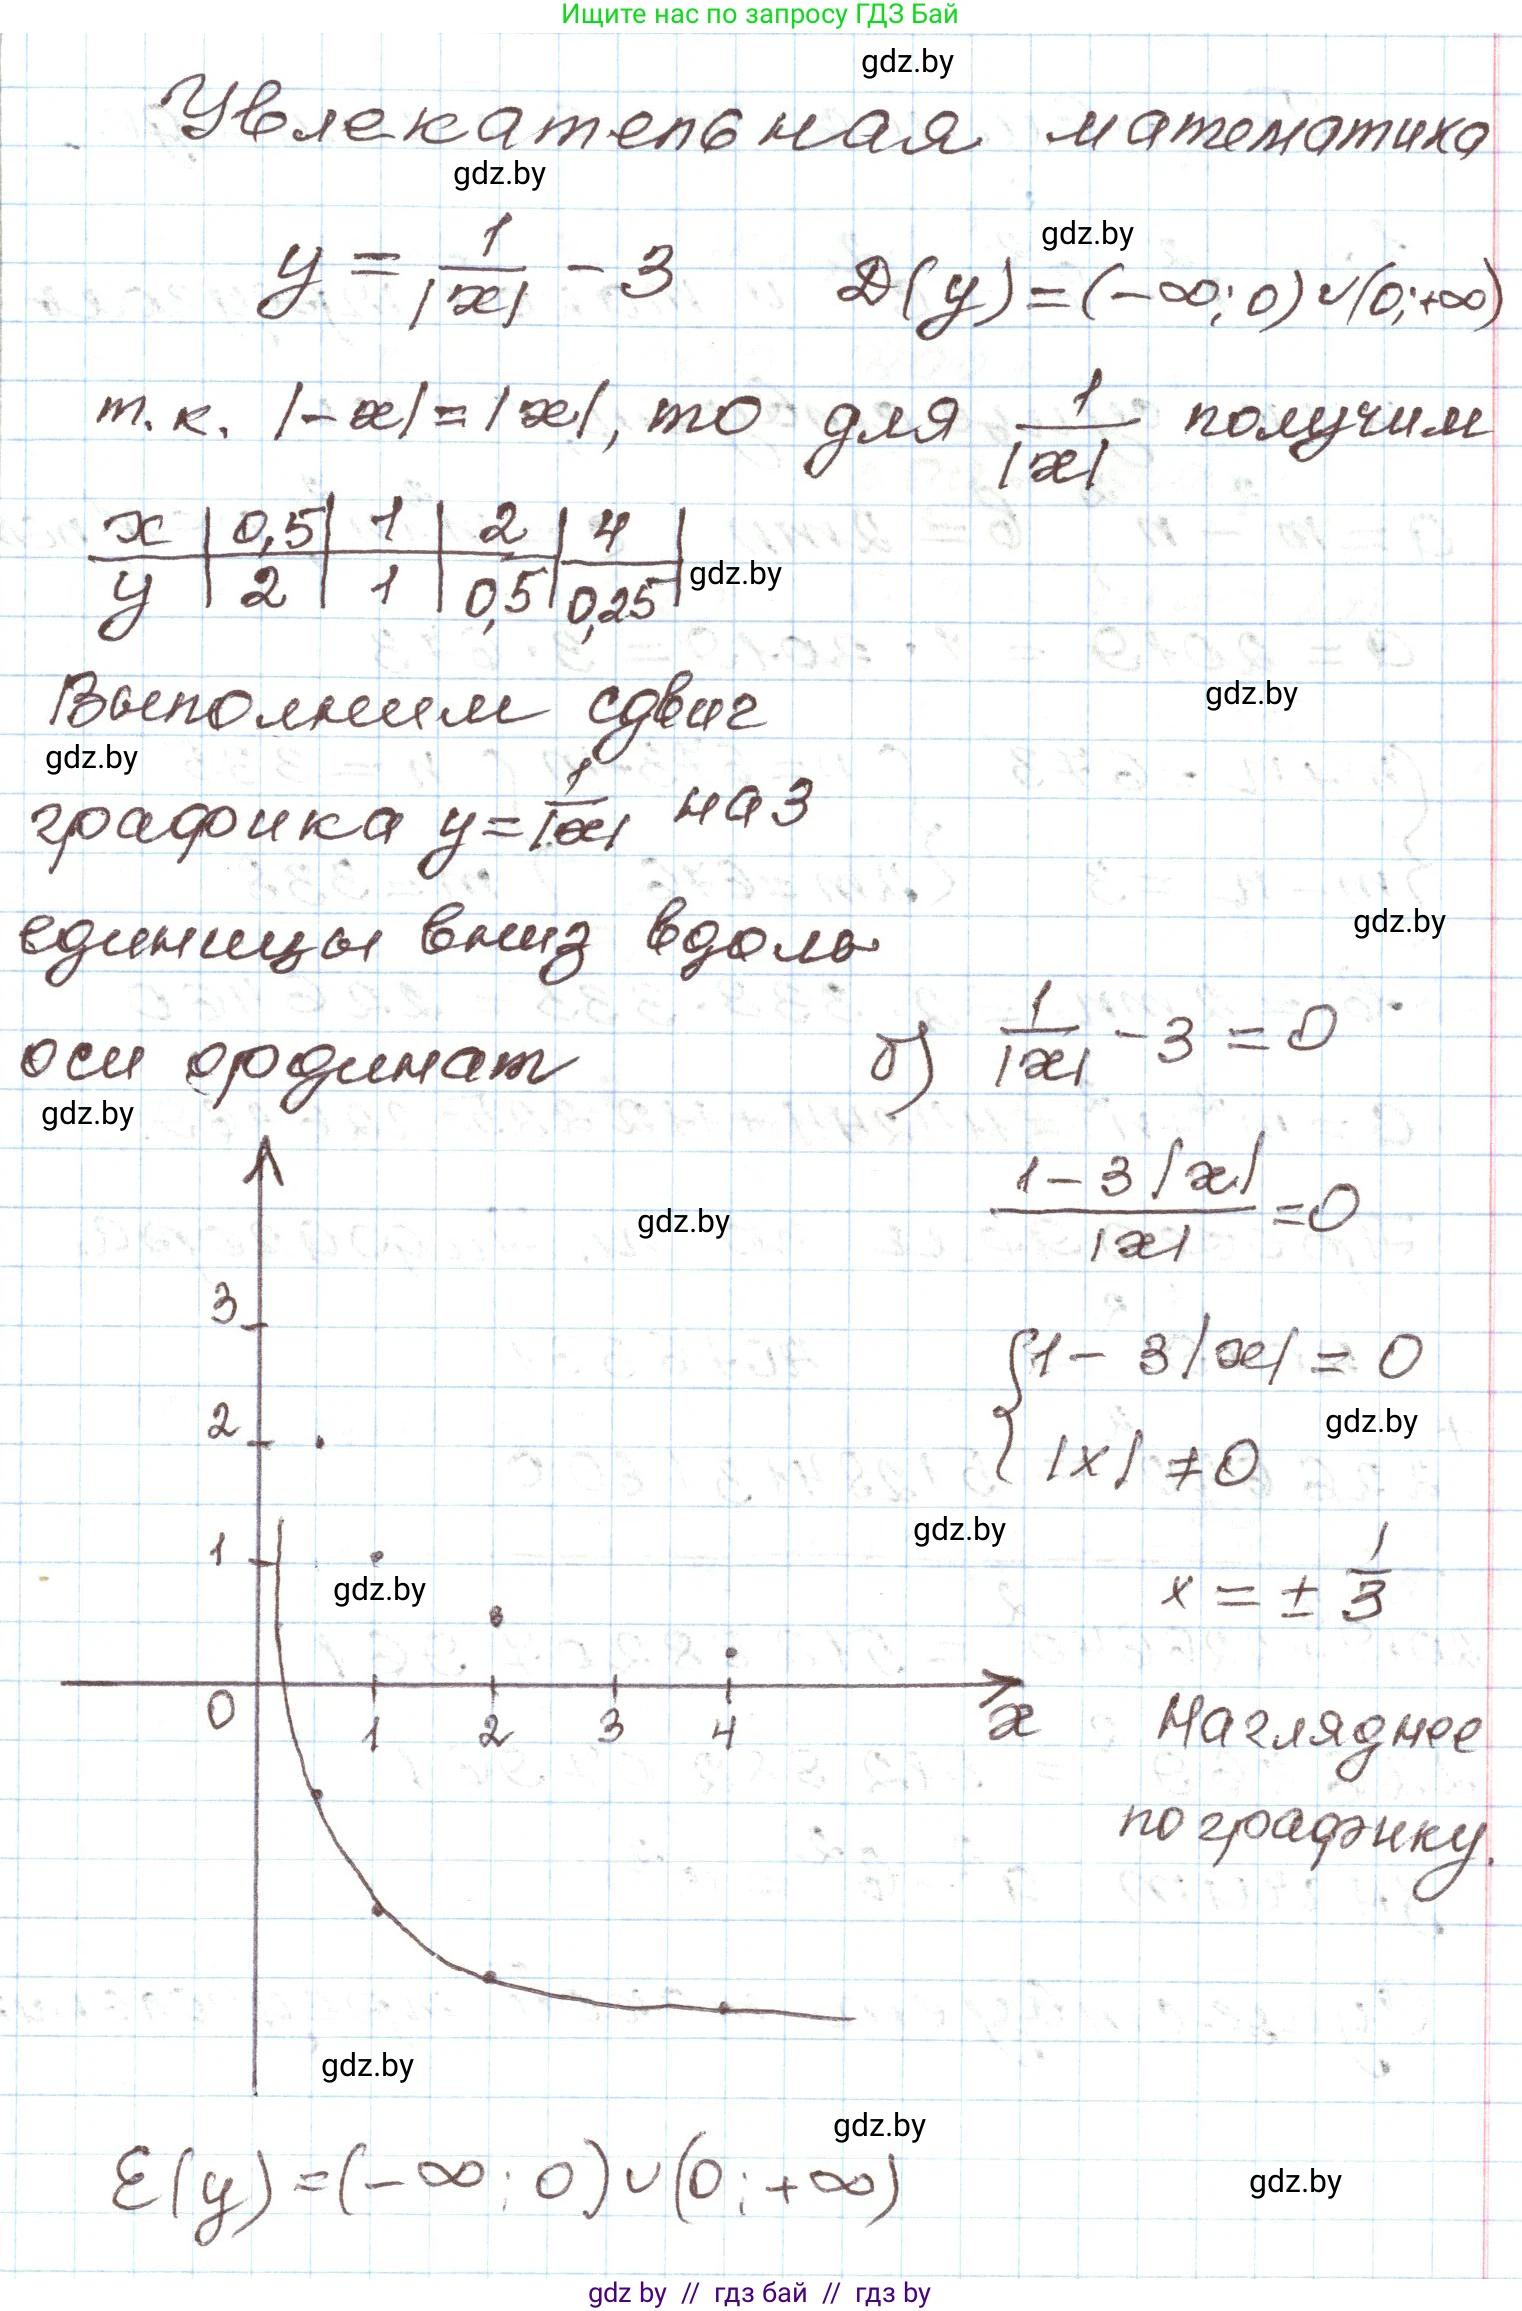 Ищите нас по запросу ГДЗ Бай
gdz.by
Увлекательная математика
gdz.by
gdz.by
y = 1/|x| - 3 D(y) = (-∞; 0) ∪ (0; +∞)
т.к. |-x| = |x|, то для 1/|x| получим
x | 0,5 | 1 | 2 | 4 |
y | 2 | 1 | 0,5 | 0,25 |
gdz.by
Выполним сдвиг
gdz.by
gdz.by
графика y = 1/|x| на 3
единицы вниз вдоль
gdz.by
оси ординат
gdz.by
б) 1/|x| - 3 = 0
(1 - 3|x|)/|x| = 0
gdz.by
{ 1 - 3|x| = 0
|x| ≠ 0
gdz.by
gdz.by
x = ± 1/3
Нагляднее
по графику.
3
2
1
gdz.by
0 1 2 3 4 x
gdz.by
gdz.by
E(y) = (-∞; 0) ∪ (0; +∞)
gdz.by
gdz by // гдз бай // гдз by